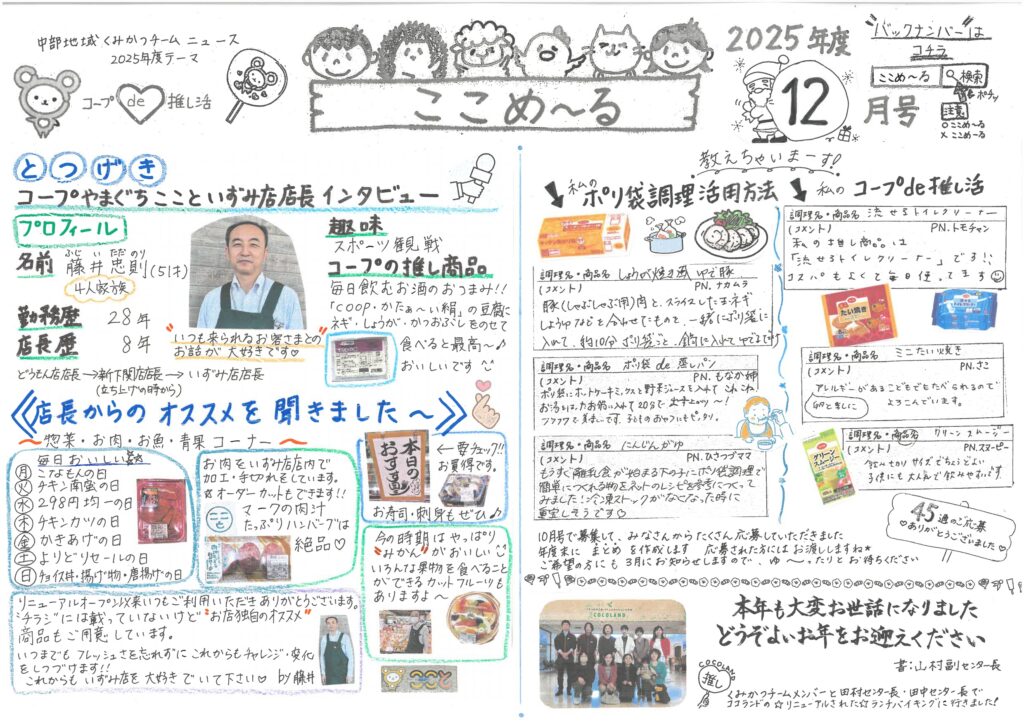 中部地域 くみかつチーム ニュース
2025年度テーマ
コープ de 推し活
ここめ〜る
2025年度
12
月号
"バックナンバー"は
コチラ
ここめ〜る 検索
ポチッ
注意
○ここめ〜る
×ここめーる
とつげき
コープやまぐちここといずみ店店長インタビュー
プロフィール
名前 藤井忠則(51才)
ふじい ただのり
4人家族
勤務歴 28年
店長歴 8年
どうもん店店長→新下関店長→いずみ店店長
(立ち上げの時から)
"いつも来られるお客さまとの
お話が大好きです♡
趣味
スポーツ観戦
コープの推し商品
毎日飲むお酒のおつまみ!!
「COOP・かたぁ〜い絹」の豆腐に
ネギ、しょうが、かつおぶしをのせて
食べると最高〜♪
おいしいです
店長からの オススメを聞きました〜
〜惣菜・お肉・お魚・青果コーナー〜
毎日おいしい
月 こてよもんの日
火 チキン南蛮の日
水 298円均一の日
木 チキンカツの日
金 かきあげの日
土 よりどりセールの日
日 チョイ丼・揚げ物・唐揚げの日
お肉をいずみ店店内で
加工・手切れをしています。
☆オーダーカットもできます!!
ここ マークの肉汁
たっぷりハンバーグは
絶品♡
本日のおすすめ
←要チェック!!
お買得です。
お寿司・刺身もぜひ♪
今の時期はやっぱり
"みかん"がおいしい
いろんな果物を食べること
ができるカットフルーツも
ありますよ〜
リニューアルオープン以来いつもご利用いただきありがとうございます。
"チラシ"には載っていないけど"お店独自のオススメ"
商品もご用意しています。
いつまでもフレッシュさを忘れずにこれからもチャレンジ・変化
をしつづけます!!
これからもいずみ店を大好きでいて下さい♡ by藤井
ここと
教えちゃいまーす!
私の ポリ袋調理活用方法
調理名・商品名 しょうが焼き風ゆで豚
(コメント) PN.ナカムラ
豚(しゃぶしゃぶ用)肉と、スライスしたたまネギ
しょうゆなどを合わせたものを、一緒にポリ袋に
入れて、約10分 ポリ袋ごと、鍋に入れてゆでるだけ
調理名・商品名 ポリ袋de蒸しパン
(コメント) PN.もなか姉
ポリ袋にホットケーキミックスと野菜ジュースを入れてこねこね
フワフワで美味しいです。子どものおやつにもピッタリ。
調理名・商品名 にんじんがゆ
(コメント) PN.ひさつグママ
もうすぐ離乳食が始まる下の子にポリ袋調理で
簡単につくれる物をネットのレシピを参考につくって
みました!冷凍ストックがなくなった時に
重宝しそうです♡
私の コープde推し活
調理名・商品名 流せるトイレクリーナー
PN.トモチャン
私の推し商品は
「流せるトイレクリーナー」です!!
コスパもよくて毎日使ってます
たい焼き
調理名・商品名 ミニたい焼き
(コメント) PN.さこ
アレルギーがあるこどもでもたべられるので
よろこんでいます。
グリーンスムージー
調理名・商品名 グリーンスムージー
(コメント) PN.スヌーピー
飲みやすいです。
45通のご応募
♡ありがとうございました♡
10月号で募集して、みなさんからたくさん応募していただきました
年度末に まとめを作成します 応募された方にはお渡ししますね★
ご希望の方にも3月にお知らせしますので、ゆ〜ったりとお待ちください
COCOLAND
本年も大変お世話になりました
どうぞよいお年をお迎えください
書:山村副センター長
COCOLAND
推し
くみかつチームメンバーと田村センター長・田中センター長で
ココランドの☆リニューアルされた☆ランチバイキングに行きました!